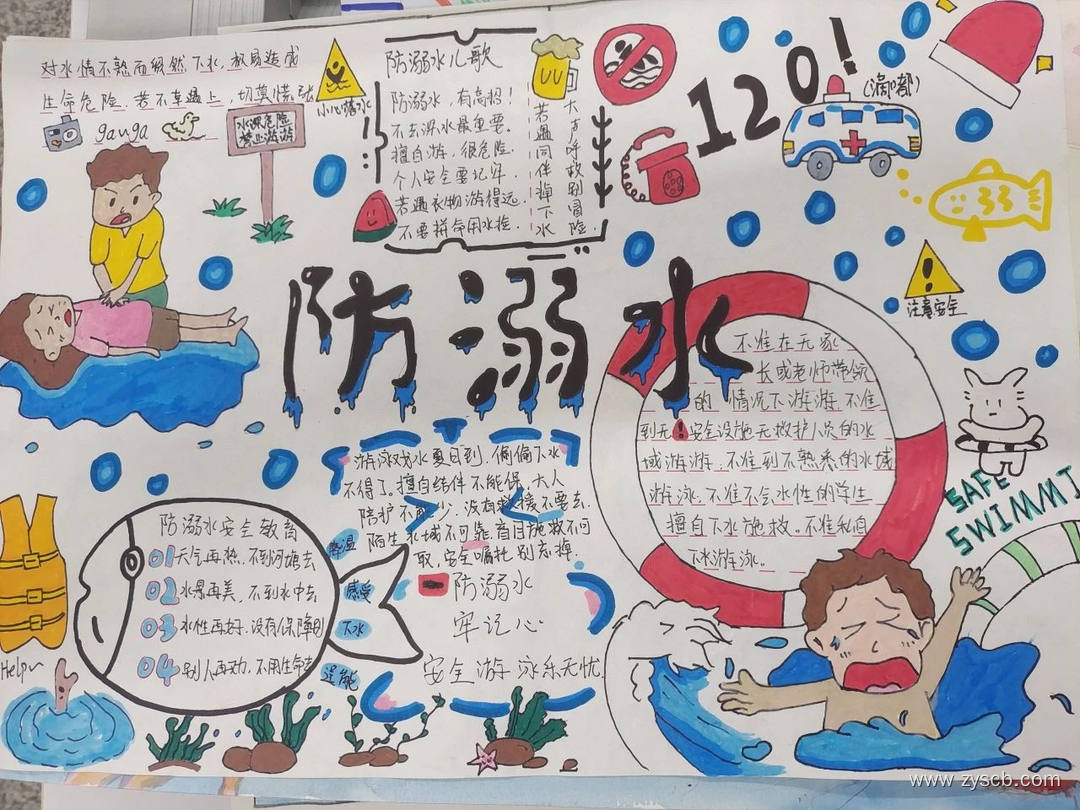 对水情不熟而贸然下水，极易造成
生命危险，若不幸遇上，切莫慌张
gauga
水深危险
禁止游泳
小心落水
防溺水儿歌
防溺水，有高招！
不去深水最重要。
擅自游，很危险，
个人安全要记牢，
若遇衣物游得远，
不要拼命用水捡，
若遇同伴掉下水
大声呼救别冒险。
120!
(滴嘟)
注意安全
防溺水
不准在无家
长或老师带领
的情况下游泳，不准
到无安全设施无救护人员的水
域游游，不准到不熟悉的水域
游泳，不准不会水性的学生
擅自下水施救。不准私自
下水游泳。
SAFE
SWIMMI
游泳戏水夏日到，偷偷下水
不得了。擅自结伴不能保，大人
陪护不能少，没有救援不要去，
陌生水域不可靠，盲目施救不可
取，安全嘱托别忘掉。
防溺水
牢记心
安全游泳乐无忧
防溺水安全教育
01 天气再热，不到河塘去
02 水景再美，不到水中去
03 水性再好，没有保障别
04 别人再劝，不用生命去
降温
感受
下水
逞能
Help
www.zyscb.com